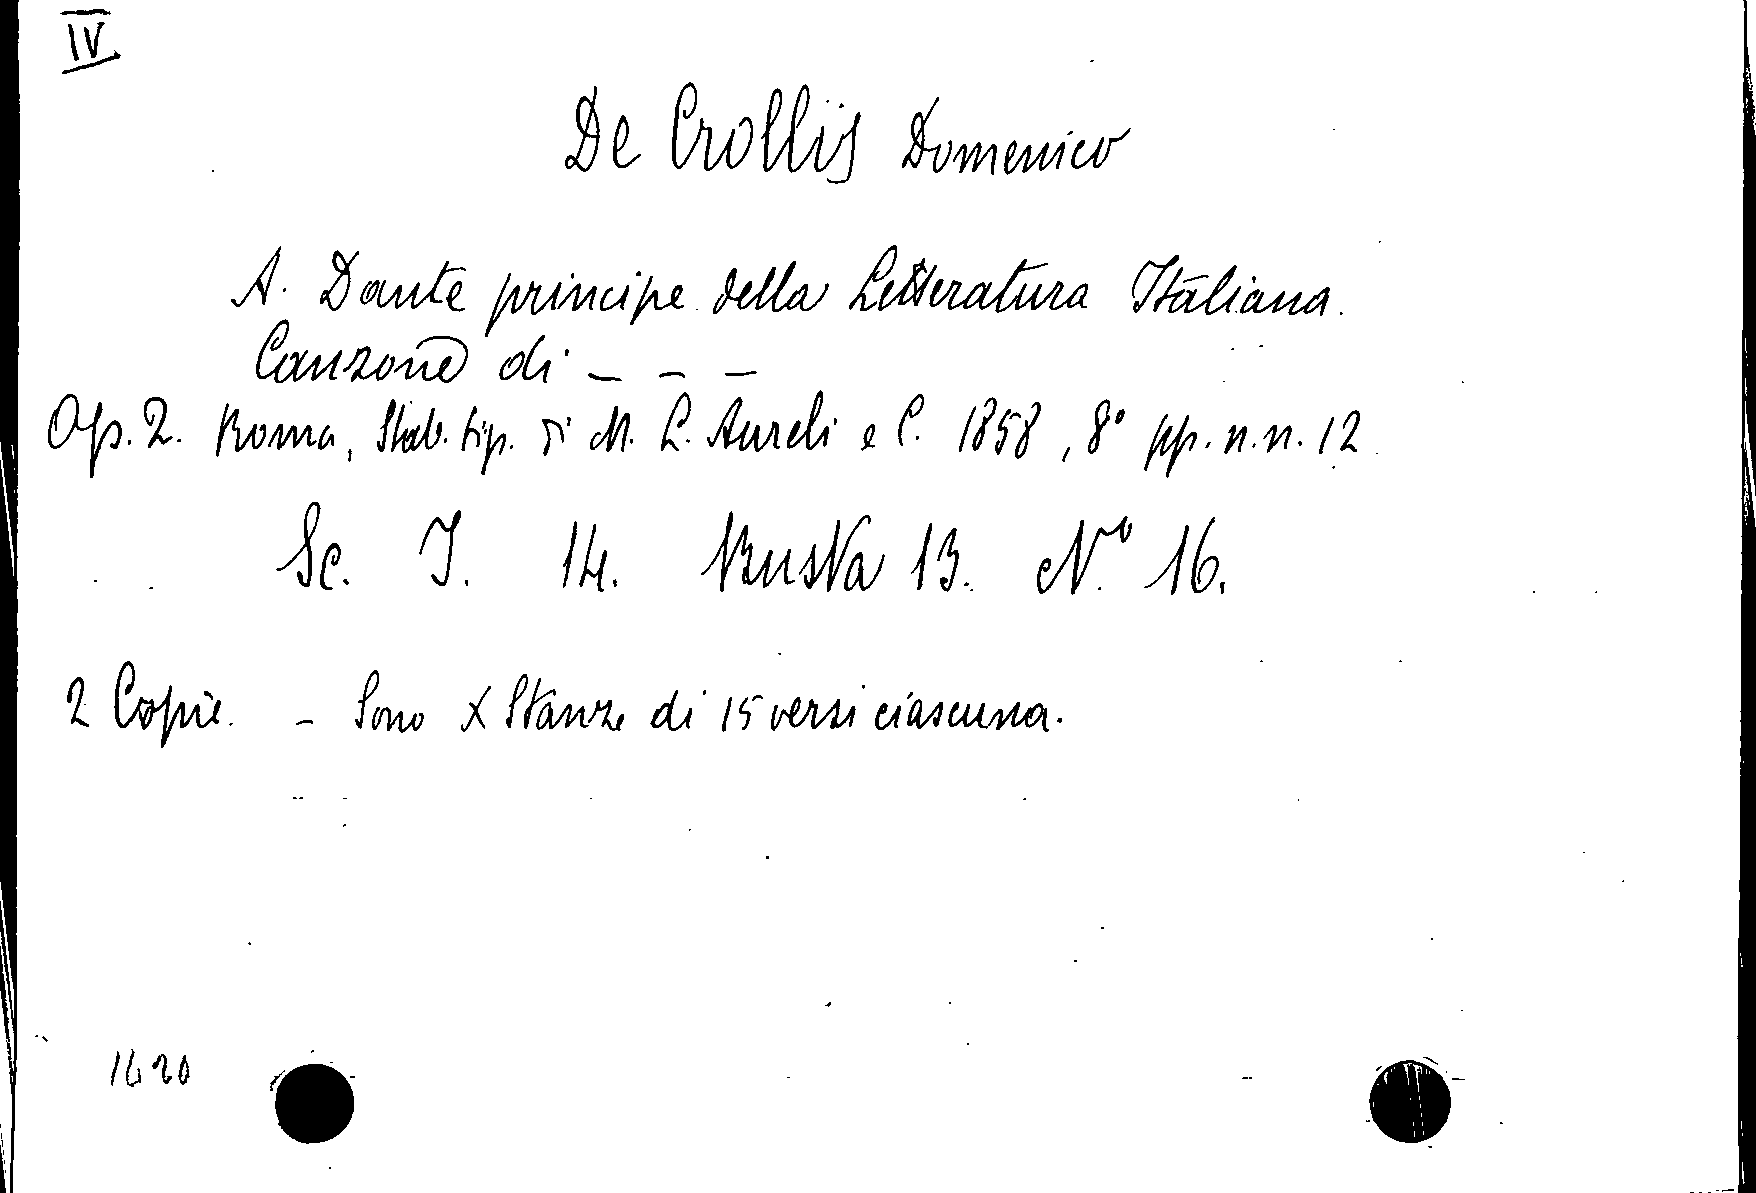 IV
De Crollis Domenico
A. Dante principe della Letteratura Italiana.
Canzone di _ _ _
Op. 2. Roma, Stab. tip. di M. L. Aureli e C. 1858, 8° pp. n.n. 12
Sc. I. 14. Busta 13. N.° 16.
2 Copie. - Sono X Stanze di 15 versi ciascuna.
1620